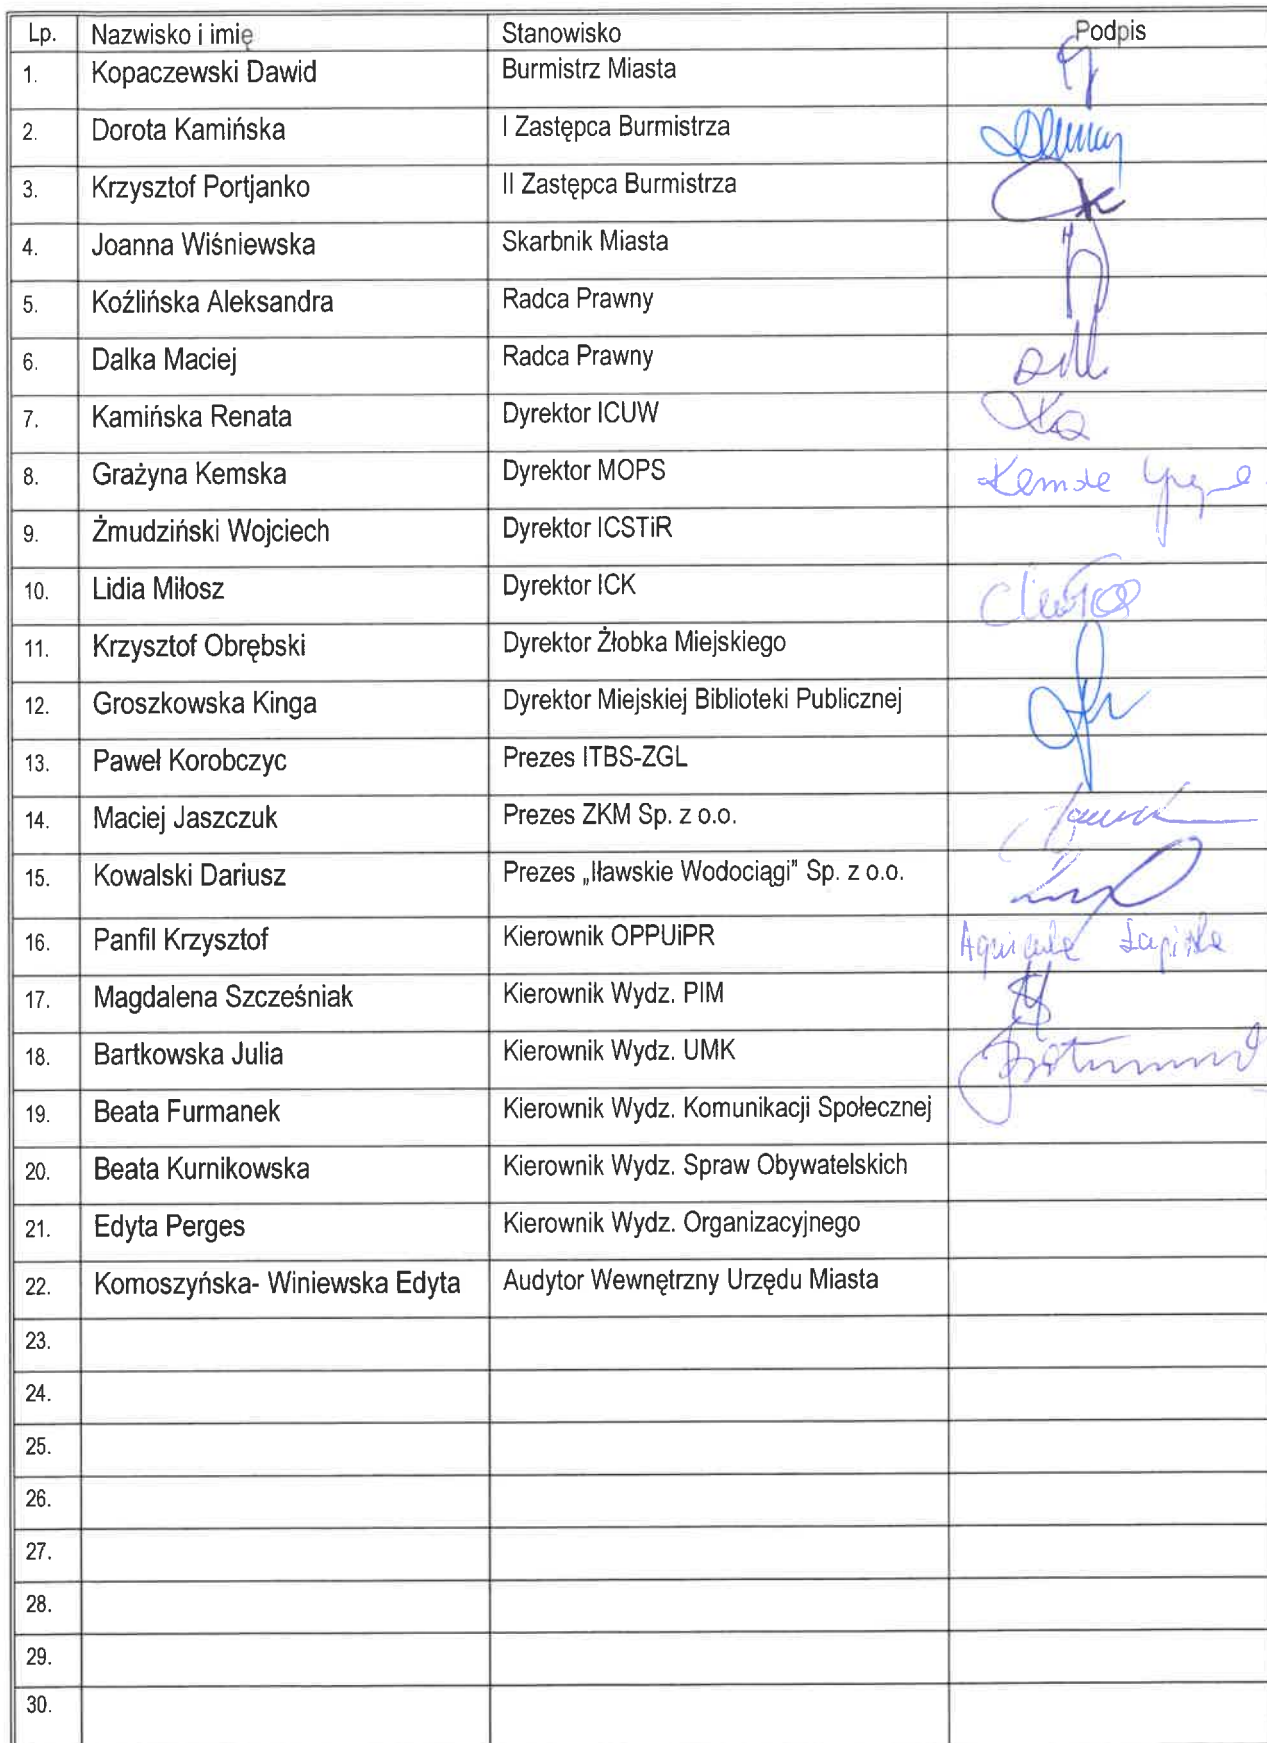 Lp. Nazwisko i imię Stanowisko Podpis
1. Kopaczewski Dawid Burmistrz Miasta
2. Dorota Kamińska I Zastępca Burmistrza
3. Krzysztof Portjanko II Zastępca Burmistrza
4. Joanna Wiśniewska Skarbnik Miasta
5. Koźlińska Aleksandra Radca Prawny
6. Dalka Maciej Radca Prawny
7. Kamińska Renata Dyrektor ICUW
8. Grażyna Kemska Dyrektor MOPS
9. Żmudziński Wojciech Dyrektor ICSTiR
10. Lidia Miłosz Dyrektor ICK
11. Krzysztof Obrębski Dyrektor Żłobka Miejskiego
12. Groszkowska Kinga Dyrektor Miejskiej Biblioteki Publicznej
13. Paweł Korobczyc Prezes ITBS-ZGL
14. Maciej Jaszczuk Prezes ZKM Sp. z o.o.
15. Kowalski Dariusz Prezes „Iławskie Wodociągi" Sp. z o.o.
16. Panfil Krzysztof Kierownik OPPUiPR
17. Magdalena Szcześniak Kierownik Wydz. PIM
18. Bartkowska Julia Kierownik Wydz. UMK
19. Beata Furmanek Kierownik Wydz. Komunikacji Społecznej
20. Beata Kurnikowska Kierownik Wydz. Spraw Obywatelskich
21. Edyta Perges Kierownik Wydz. Organizacyjnego
22. Komoszyńska- Winiewska Edyta Audytor Wewnętrzny Urzędu Miasta
23.
24.
25.
26.
27.
28.
29.
30.